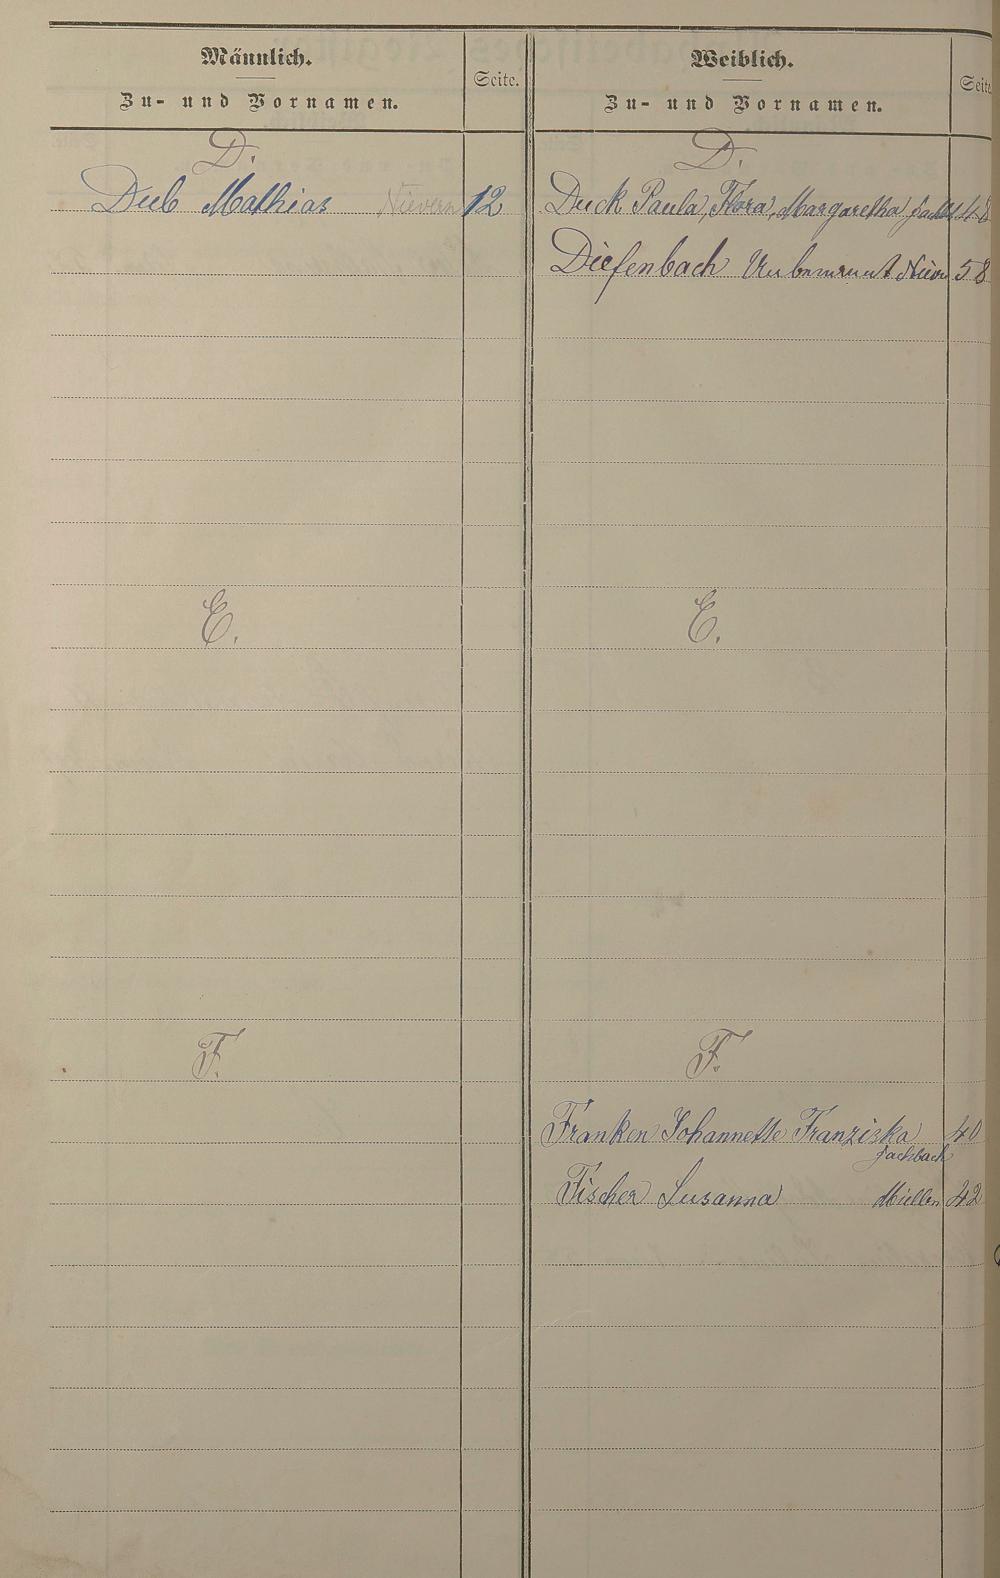 Männlich.
Zu- und Vornamen.
Seite.
Weiblich.
Zu- und Vornamen.
Seite
D.
D.
Dub Mathias Nievern 12
Duck Paula, Flora, Margaretha Fachb 48
Diefenbach Unbenannt Nievn 58
E.
E.
F.
F.
Franken Johannette Franziska 40
Fachbach
Fischer Susanna Miellen 42